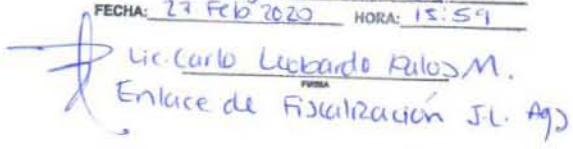 FECHA: 27 Feb 2020 HORA: 15:59
Lic. Carlo Leobardo M.
FIRMA
Enlace de Fiscalización J.L. Ags